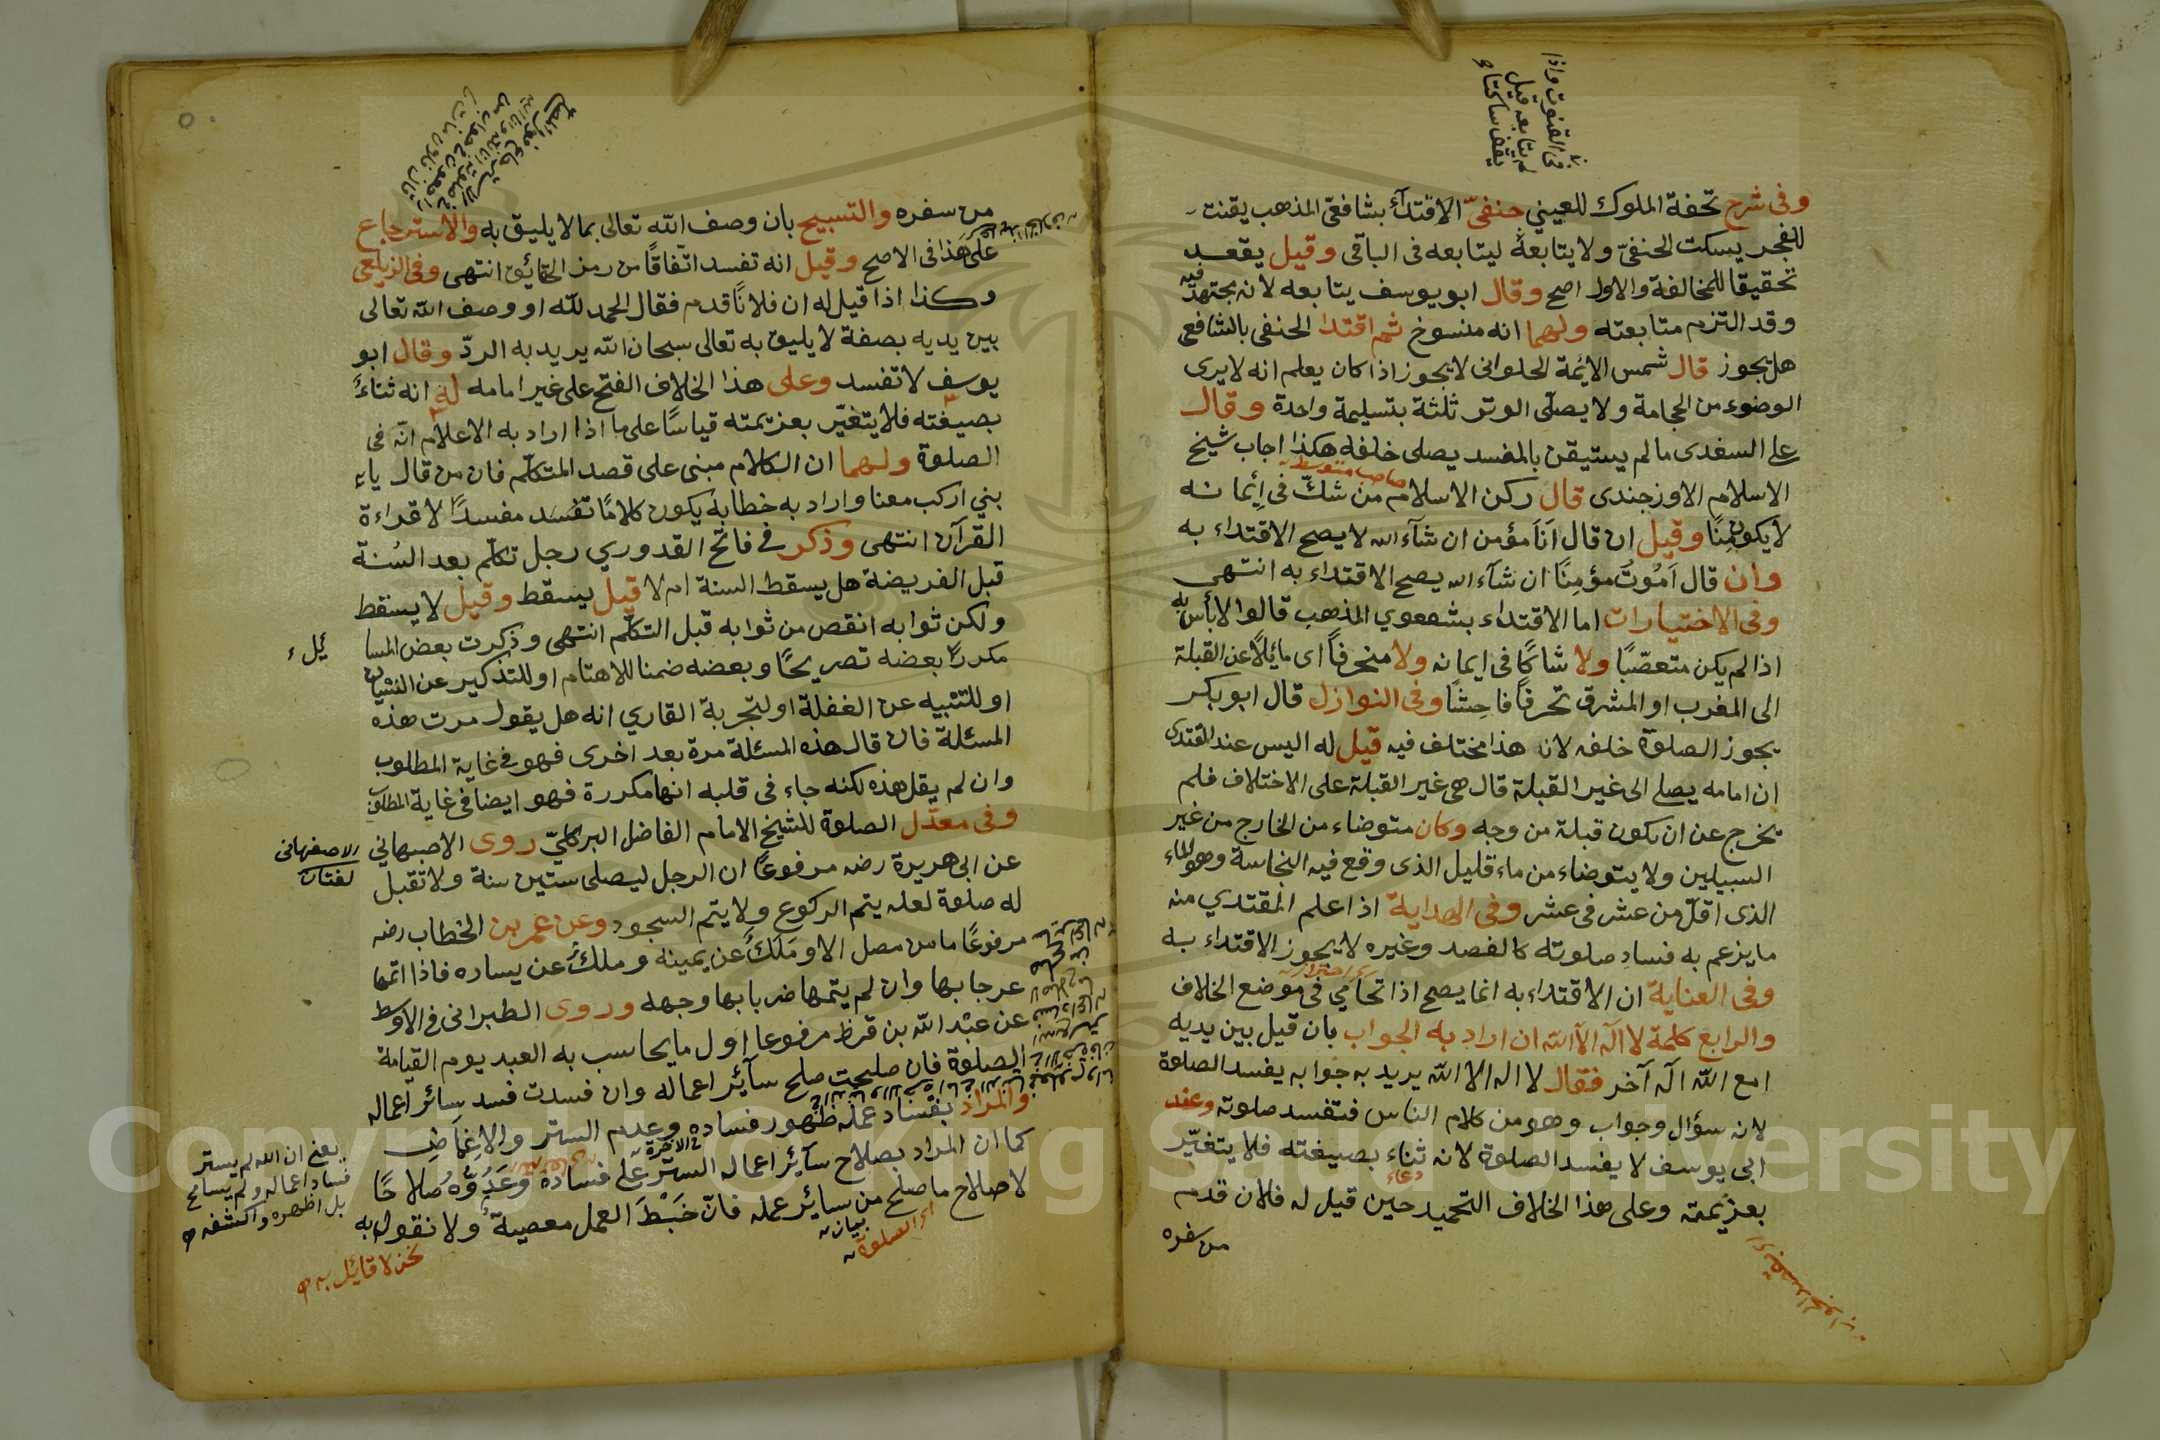 وفى شرح تحفة الملوك للعيني حنفىّ الاقتدآء بشافعىّ المذهب يقنت
للفجر يسكت الحنفىّ ولا يتابعة ليتابعه فى الباقى وقيل يقعد
تحقيقا للمخالفة والاول اصح وقال ابو يوسف يتابعه لانه مجتهد فيه
وقد التزم متابعته ولهما انه منسوخ ثم اقتدا الحنفى بالشافعى
هل يجوز قال شمس الائمة الحلوانى لا يجوز اذا كان يعلم انه لا يرى
الوضوء من الحجامة ولا يصلّى الوتر ثلثة بتسليمة واحدة وقال
على السغدى ما لم يستيقن بالمفسد يصلى خلفه هكذا اجاب شيخ
الاسلام الاوزجندى قال ركن الاسلام من شكّ فى إيمانه
لا يكون مؤمنًا وقيل ان قال اَنَا مؤمن ان شآء الله لا يصح الاقتداء به
وان قال اَمُوتُ مؤمِنًا ان شآء الله يصح الاقتداء به انتهى
وفى الاختيارات اما الاقتداء بشفعوي المذهب قالوا لا بأس به
اذا لم يكن متعصّبًا ولا شاكًا فى ايمانه ولا منحرفاً اى مائلًا عن القبلة
الى المغرب او المشرق تحرفاً فاحِشًا وفى النوازل قال ابو بكر
يجوز الصلوة خلفه لانه هذا مختلف فيه قيل له اليس عند المقتدى
ان امامه يصلى الى غير القبلة قال هى غير القبلة على الاختلاف فلم
تخرج عن ان يكون قبلة من وجه وكان متوضاء من الخارج من غير
السبيلين ولا يتوضاء من ماء قليل الذى وقع فيه النجاسة وهو الماء
الذى اقلّ من عشر فى عشر وفى الهداية اذا علم المقتدي منه
ما يزعم به فساد صلوته كالفصد وغيره لا يجوز الاقتداء به
وفى العناية ان الاقتداء به انما يصح اذا تحامي فى موضع الخلاف
والرابع كلمة لا اله الا الله ان اراد به الجواب بان قيل بين يديه
امع الله اله آخر فقال لا اله الا الله يريد به جوابه يفسد الصلوة
لانه سؤال وجواب وهو من كلام الناس فتفسد صلوته وعند
ابى يوسف لا يفسد الصلوة لانه ثناء بصيغته فلا يتغيّر
بعزيمته وعلى هذا الخلاف التحميد حين قيل له فلان قدم
من سفره
فى القنوت واذا
لم يتابعه قيل
يقف ساكتا
من سفره والتسبيح بان وصف الله تعالى بما لا يليق به والاسترجاع
على هذا فى الاصح وقيل انه تفسد اتّفاقًا من رمز الحقائق انتهى وفى الزيلعى
وكذا اذا قيل له ان فلانًا قدم فقال الحمد لله او وصف الله تعالى
بين يديه بصفة لا يليق به تعالى سبحان الله يريد به الردّ وقال ابو
يوسف لا تفسد وعلى هذا الخلاف الفتح على غير امامه له انه ثناءً
بصيغته فلا يتغيّر بعزيمته قياسًا على ما اذا اراد به الاعلام انّه فى
الصلوة ولهما ان الكلام مبنى على قصد المتكلّم فان من قال ياء
بني اركب معنا واراد به خطابه يكون كلامًا تفسد مفسدًا لا قراءة
القرآن انتهى وذكر فى فاتح القدوري رجل تكلّم بعد السُنة
قبل الفريضة هل يسقط السنة ام لا قيل يسقط وقيل لا يسقط
ولكن ثوابه انقص من ثوابه قبل التكلّم انتهى وذكرت بعض المسا
ئل
مكررًا بعضه تصريحًا وبعضه ضمنا للاهتمام او للتذكير عن النسيان
او للتنبيه عن الغفلة او لتجربة القاري انه هل يقول مرت هذه
المسئلة فان قال هذه المسئلة مرة بعد اخرى فهو فى غاية المطلوب
وان لم يقل هذه لكنه جاء فى قلبه انها مكررة فهو ايضا فى غاية المطلوب
وفى معدّل الصلوة للشيخ الامام الفاضل البركلىّ روى الاصبهاني
الاصفهانى
لغتان
عن ابى هريرة رضه مرفوعًا ان الرجل ليصلى ستين سنة ولا تقبل
له صلوة لعله يتم الركوع ولا يتم السجود وعن عمر بن الخطاب رضه
مرفوعًا ما من مصل الا وملكٌ عن يمينه وملكٌ عن يساره فاذا اتمها
عرجا بها وان لم يتمها ضربا بها وجهه وروى الطبرانى فى الاوسط
عن عبْد الله بن قرظ مرفوعا اول ما يحاسب به العبد يوم القيامة
الصلوة فان صلحت صلح سآئر اعماله وان فسدت فسد سائر اعماله
والمراد بفساد عمله ظهور فساده وعدم الستر والاغماض
كما ان المراد بصلاح سآئر اعماله الستر على فساده وعَدُوُّهُ صلاحًا
لا صلاح ما صلح من سائر عمله فانّ خَبْطَ العمل معصية ولا نقول به
يعنى ان الله لم يستر
فساد اعماله ولم يسامح
بل اظهره واكشفه
نحن لا قائل به
اى الصلوة